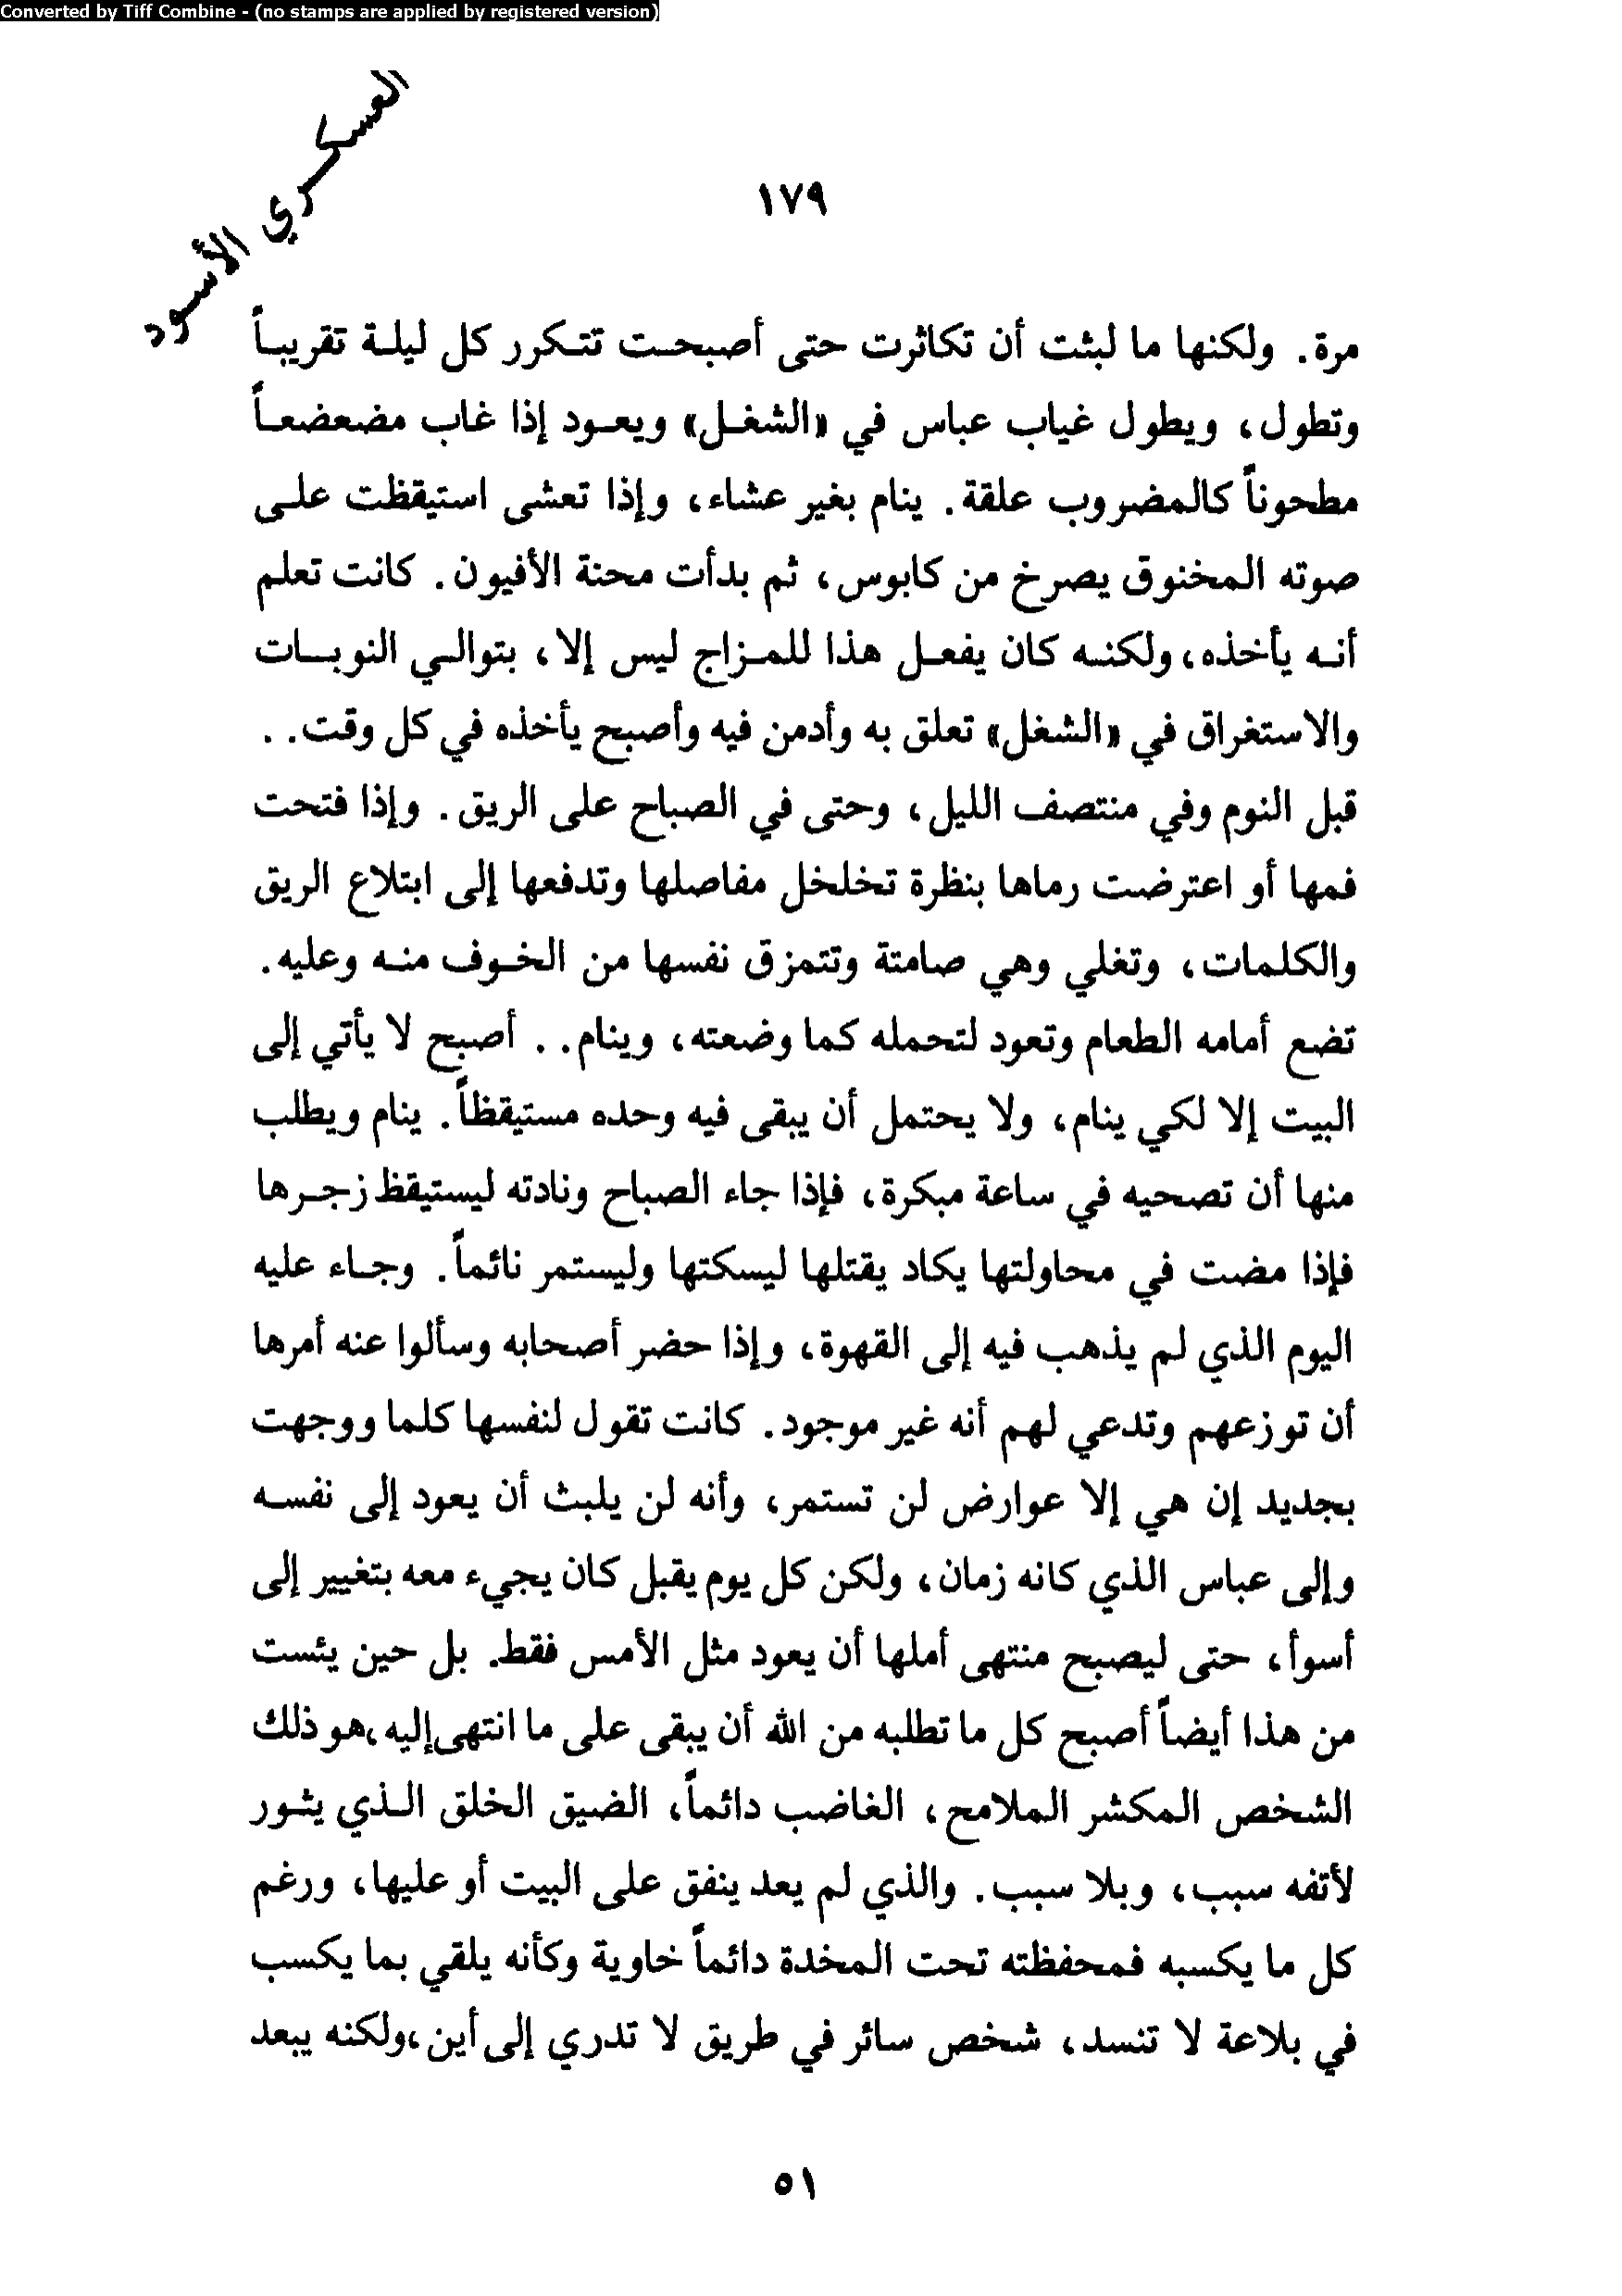 Converted by Tiff Combine - (no stamps are applied by registered version)
العسكري الأسود
١٧٩
مرة. ولكنها ما لبثت أن تكاثرت حتى أصبحت تتكرر كل ليلة تقريباً
وتطول، ويطول غياب عباس في «الشغل» ويعود إذا غاب مضعضعاً
مطحوناً كالمضروب علقة. ينام بغير عشاء، وإذا تعشى استيقظت على
صوته المخنوق يصرخ من كابوس، ثم بدأت محنة الأفيون. كانت تعلم
أنه يأخذه، ولكنه كان يفعل هذا للمزاج ليس إلا، بتوالي النوبات
والاستغراق في «الشغل» تعلق به وأدمن فيه وأصبح يأخذه في كل وقت..
قبل النوم وفي منتصف الليل، وحتى في الصباح على الريق. وإذا فتحت
فمها أو اعترضت رماها بنظرة تخلخل مفاصلها وتدفعها إلى ابتلاع الريق
والكلمات، وتغلي وهي صامتة وتتمزق نفسها من الخوف منه وعليه.
تضع أمامه الطعام وتعود لتحمله كما وضعته، وينام.. أصبح لا يأتي إلى
البيت إلا لكي ينام، ولا يحتمل أن يبقى فيه وحده مستيقظاً. ينام ويطلب
منها أن تصحيه في ساعة مبكرة، فإذا جاء الصباح ونادته ليستيقظ زجرها
فإذا مضت في محاولتها يكاد يقتلها ليسكتها وليستمر نائماً. وجاء عليه
اليوم الذي لم يذهب فيه إلى القهوة، وإذا حضر أصحابه وسألوا عنه أمرها
أن توزعهم وتدعي لهم أنه غير موجود. كانت تقول لنفسها كلما ووجهت
بجديد إن هي إلا عوارض لن تستمر، وأنه لن يلبث أن يعود إلى نفسه
وإلى عباس الذي كانه زمان، ولكن كل يوم يقبل كان يجيء معه بتغيير إلى
أسوأ، حتى ليصبح منتهى أملها أن يعود مثل الأمس فقط. بل حين يئست
من هذا أيضاً أصبح كل ما تطلبه من الله أن يبقى على ما انتهى إليه، هو ذلك
الشخص المكشر الملامح، الغاضب دائماً، الضيق الخلق الذي يثور
لأتفه سبب، وبلا سبب. والذي لم يعد ينفق على البيت أو عليها، ورغم
كل ما يكسبه فمحفظته تحت المخدة دائماً خاوية وكأنه يلقي بما يكسب
في بلاعة لا تنسد، شخص سائر في طريق لا تدري إلى أين، ولكنه يبعد
٥١